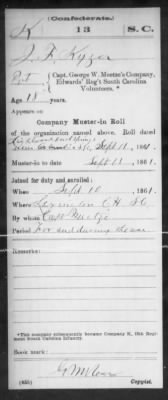 (Confederate.)
K 13 S.C.
J. F. Kyzer
Pvt { Capt. George W. Meetze's Company, Edwards' Reg't South Carolina Volunteers.*
Age 18 years.
Appears on
Company Muster-in Roll
of the organization named above. Roll dated
Sept 11, 1861.
Muster-in to date Sept 11, 1861.
Joined for duty and enrolled:
When Sept 10, 1861.
Where Lexington C.H. S.C.
By whom Capt Meetze
Period
Remarks:
*This company subsequently became Company K, 13th Regiment South Carolina Infantry.
Book mark:
(635) Copyist.